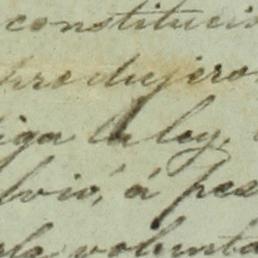 constitucio
produjero
iga la ley,
lvió, á pes
volunta